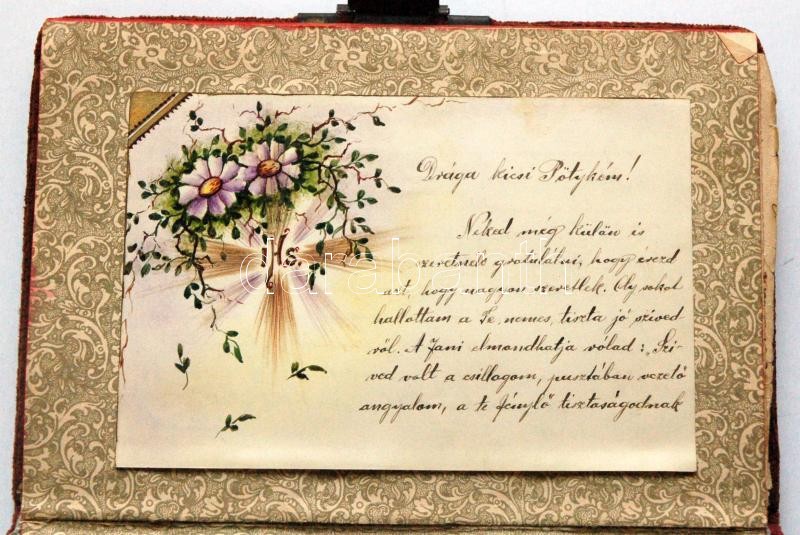 Drága kicsi Pötykém!
Neked még külön is
szeretnék gratulálni, hogy érezd
azt, hogy nagyon szeretlek. Oly sokat
hallottam a Te, nemes, tiszta jó szived
ről. A Jani elmondhatja rólad: „Szi-
ved volt a csillagom, pusztában vezető
angyalom, a te fénylő tisztaságodnak
IHS.
darabanth